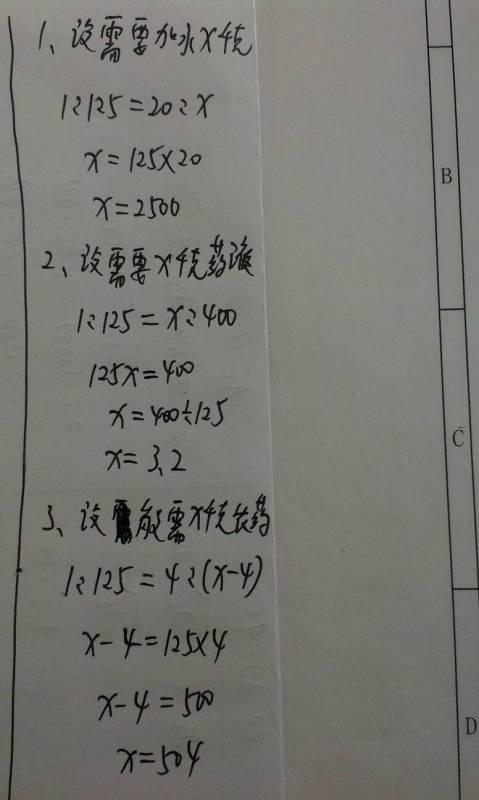 1、设需要加水x千克
1:125=20:x
x=125×20
x=2500
2、设需要x千克药液
1:125=x:400
125x=400
x=400÷125
x=3.2
3、设能需x千克农药
1:125=4:(x-4)
x-4=125×4
x-4=500
x=504
B
C
D